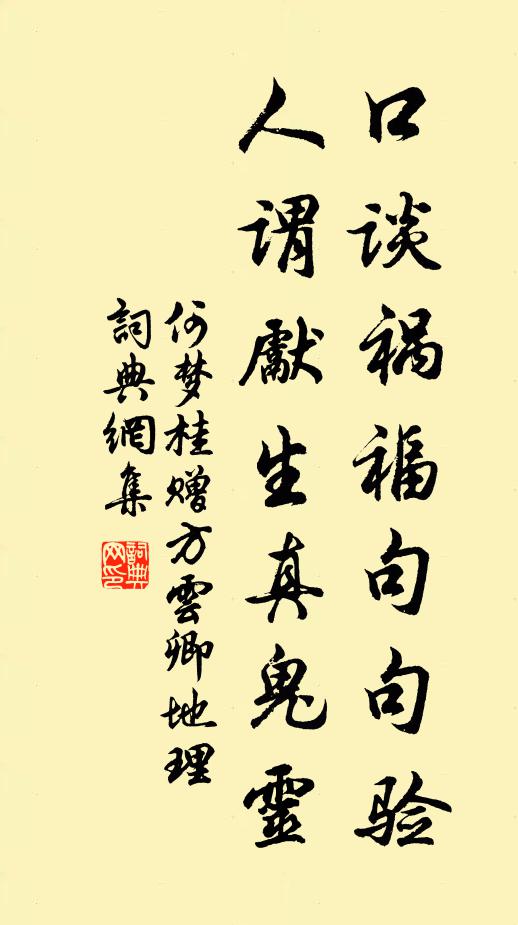 口谈祸福句句验
人谓献生真鬼靈
何梦桂赠方雲卿地理
詞典網集
詞典网印